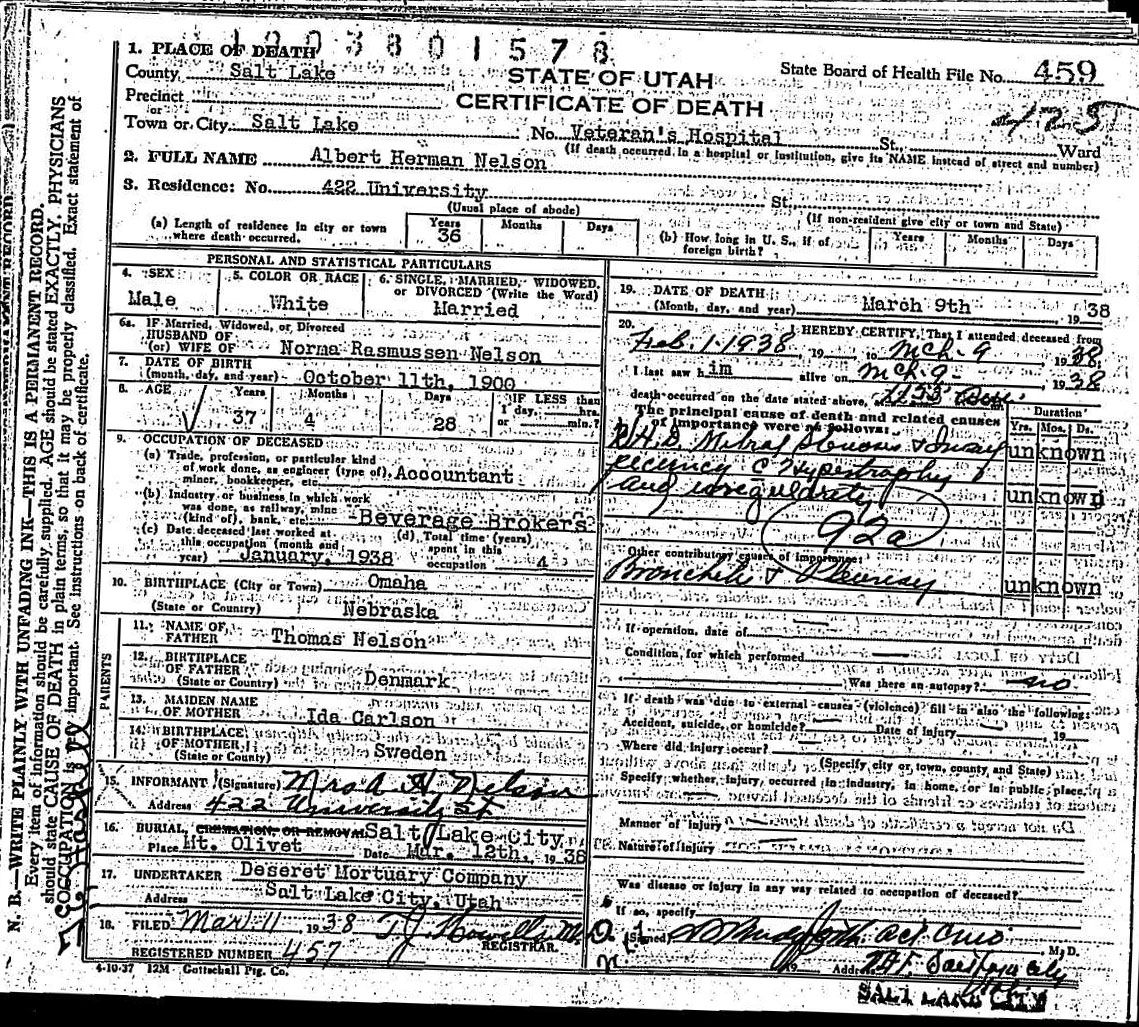 1203801578
1. PLACE OF DEATH
County Salt Lake
STATE OF UTAH
State Board of Health File No. 459
Precinct
or
CERTIFICATE OF DEATH
425
Town or City Salt Lake No. Veteran's Hospital St., Ward
(If death occurred in a hospital or institution, give its NAME instead of street and number)
2. FULL NAME Albert Herman Nelson
3. Residence: No. 422 University St.
(Usual place of abode)
(If non-resident give city or town and State)
(a) Length of residence in city or town where death occurred. Years 36 Months Days
(b) How long in U. S., if of foreign birth? Years Months Days
PERSONAL AND STATISTICAL PARTICULARS
4. SEX Male
5. COLOR OR RACE White
6. SINGLE, MARRIED, WIDOWED, or DIVORCED (Write the Word) Married
6a. IF Married, Widowed, or Divorced
HUSBAND OF
(or) WIFE OF Norma Rasmussen Nelson
7. DATE OF BIRTH
(month, day, and year) October 11th, 1900
8. AGE Years 37 Months 4 Days 28 IF LESS than 1 day, hrs. or min.?
9. OCCUPATION OF DECEASED
(a) Trade, profession, or particular kind of work done, as engineer (type of), miner, bookkeeper, etc. Accountant
(b) Industry or business in which work was done, as railway, mine (kind of), bank, etc. Beverage Brokers
(c) Date deceased last worked at this occupation (month and year) January, 1938
(d) Total time (years) spent in this occupation 4
10. BIRTHPLACE (City or Town) Omaha
(State or Country) Nebraska
PARENTS
11. NAME OF FATHER Thomas Nelson
12. BIRTHPLACE OF FATHER
(State or Country) Denmark
13. MAIDEN NAME OF MOTHER Ida Carlson
14. BIRTHPLACE OF MOTHER
(State or Country) Sweden
15. INFORMANT (Signature) Mrs A H Nelson
Address 422 University St
16. BURIAL, CREMATION, OR REMOVAL Salt Lake City
Place Mt. Olivet Date Mar. 12th, 1938
17. UNDERTAKER Deseret Mortuary Company
Address Salt Lake City, Utah
18. FILED Mar 11 1938 T.J. Howells M.D.
REGISTRAR.
REGISTERED NUMBER 457
4-10-37 12M Gottschall Ptg. Co.
19. DATE OF DEATH
(Month, day, and year) March 9th 1938
20. I HEREBY CERTIFY, That I attended deceased from
Feb. 1-1938, 19 to Mch-9 1938
I last saw him alive on Mch-9- 1938
death occurred on the date stated above,
The principal cause of death and related causes of importance were as follows:
Duration
Yrs. Mos. Ds.
R.H.D. Mitral Stenosis & Insuf unknown
ficiency c Hypertrophy
and irregularity unknown
92a
Other contributory causes of importance:
Bronchitis & Pleurisy unknown
If operation, date of
Condition for which performed
Was there an autopsy? no
If death was due to external causes (violence) fill in also the following:
Accident, suicide, or homicide? Date of injury 19
Where did injury occur?
(Specify city or town, county, and State)
Specify whether injury occurred in industry, in home, or in public place.
Manner of injury
Nature of injury
Was disease or injury in any way related to occupation of deceased?
If so, specify
(Signed) Act. CMO M. D.
19 Address
SALT LAKE CITY
N. B.—WRITE PLAINLY WITH UNFADING INK—THIS IS A PERMANENT RECORD.
Every item of information should be carefully supplied. AGE should be stated EXACTLY. PHYSICIANS
should state CAUSE OF DEATH in plain terms, so that it may be properly classified. Exact statement of
OCCUPATION is very important. See instructions on back of certificate.